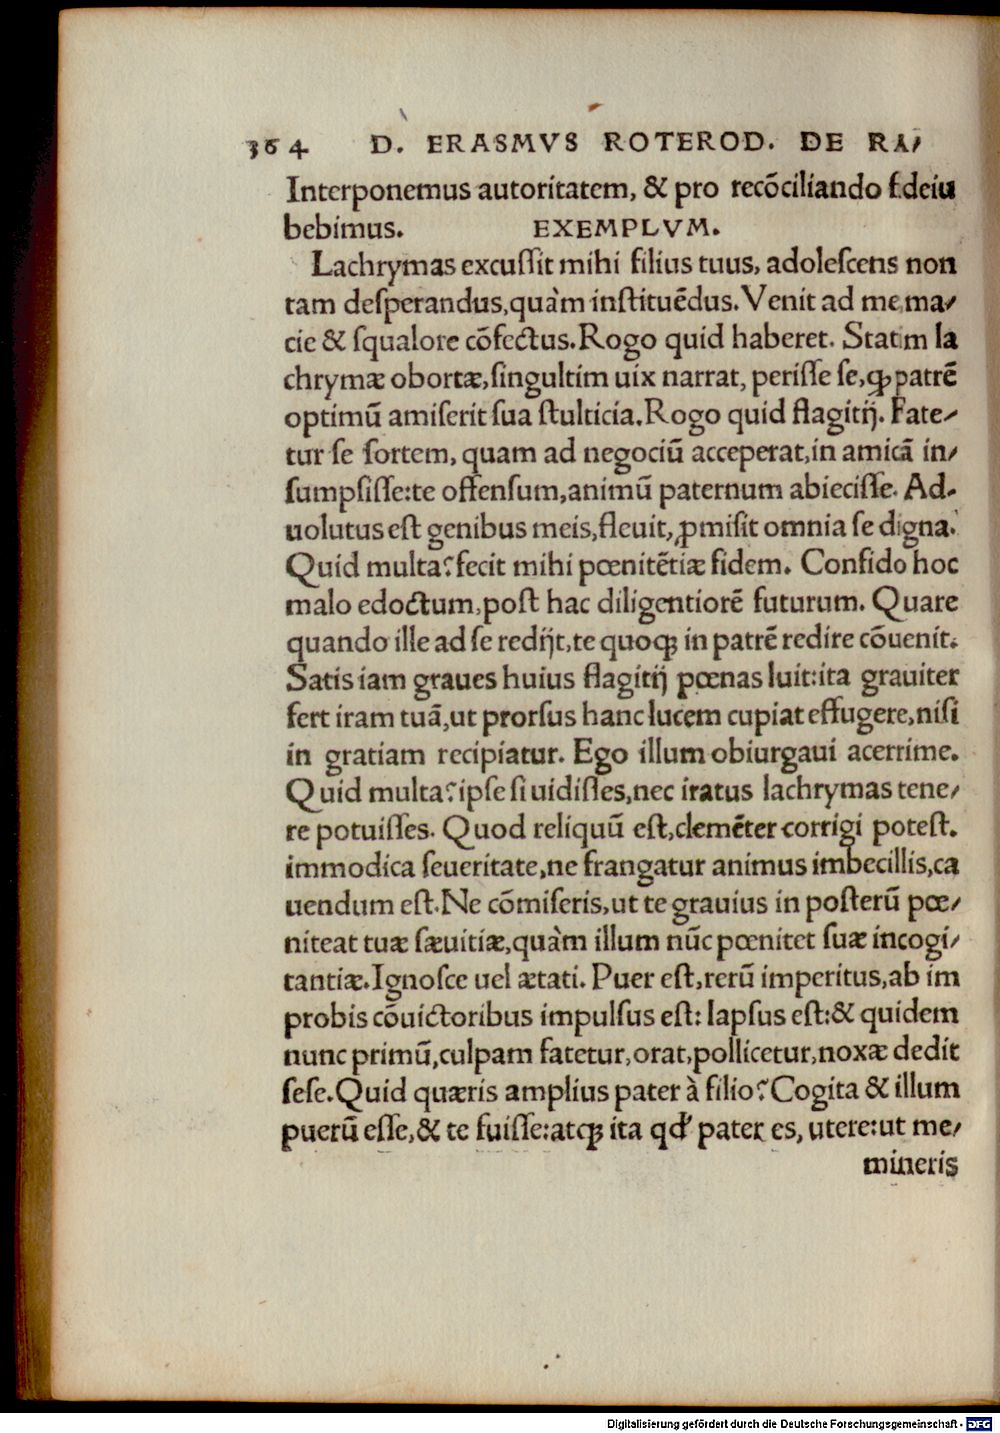 364 D. ERASMVS ROTEROD. DE RA⸗
Interponemus autoritatem, & pro recōciliando fideiu
bebimus. EXEMPLVM.
Lachrymas excuſſit mihi filius tuus, adoleſcens non
tam deſperandus, quàm inſtituēdus. Venit ad me ma⸗
cie & ſqualore cōfectus. Rogo quid haberet. Statim la
chrymæ obortæ, ſingultim uix narrat, periſſe ſe, ꝙ patrē
optimū amiſerit ſua ſtulticia. Rogo quid flagitij. Fate⸗
tur ſe ſortem, quam ad negociū acceperat, in amicā in⸗
ſumpſiſſe: te offenſum, animū paternum abieciſſe. Ad⸗
uolutus eſt genibus meis, fleuit, ꝓmiſit omnia ſe digna.
Quid multa? fecit mihi pœnitētiæ fidem. Confido hoc
malo edoctum, poſt hac diligentiorē futurum. Quare
quando ille ad ſe redijt, te quoqꝫ in patrē redire cōuenit.
Satis iam graues huius flagitij pœnas luit: ita grauiter
fert iram tuā, ut prorſus hanc lucem cupiat effugere, niſi
in gratiam recipiatur. Ego illum obiurgaui acerrime.
Quid multa? ipſe ſi uidiſſes, nec iratus lachrymas tene⸗
re potuiſſes. Quod reliquū eſt, clemēter corrigi poteſt.
immodica ſeueritate, ne frangatur animus imbecillis, ca
uendum eſt. Ne cōmiſeris, ut te grauius in poſterū pœ⸗
niteat tuæ ſæuitiæ, quàm illum nūc pœnitet ſuæ incogi⸗
tantiæ. Ignoſce uel ætati. Puer eſt, rerū imperitus, ab im
probis cōuictoribus impulſus eſt: lapſus eſt: & quidem
nunc primū, culpam fatetur, orat, pollicetur, noxæ dedit
ſeſe. Quid quæris amplius pater à filio? Cogita & illum
puerū eſſe, & te fuiſſe: atqꝫ ita qđ pater es, utere: ut me⸗
mineris
Digitalisierung gefördert durch die Deutsche Forschungsgemeinschaft - DFG